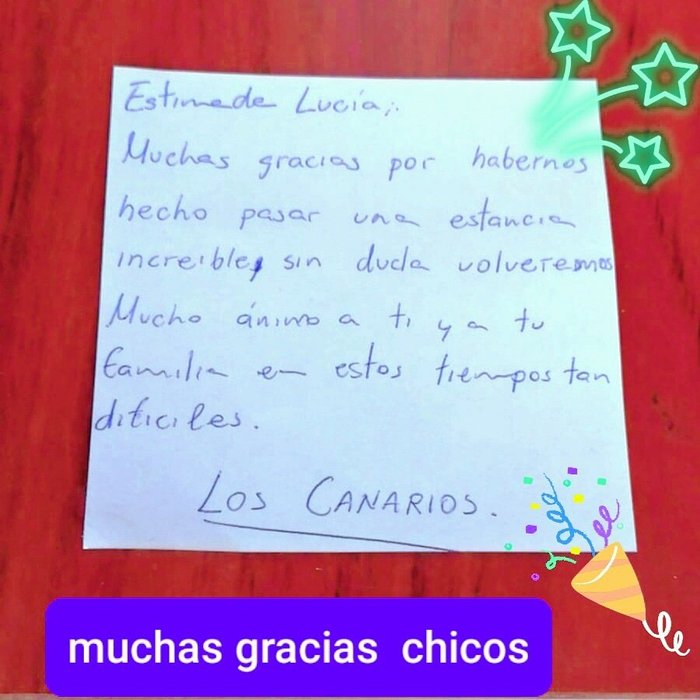 Estimada Lucía,
Muchas gracias por habernos
hecho pasar una estancia
increible, sin duda volveremos
Mucho ánimo a ti y a tu
familia en estos tiempos tan
dificiles.
LOS CANARIOS.
muchas gracias chicos